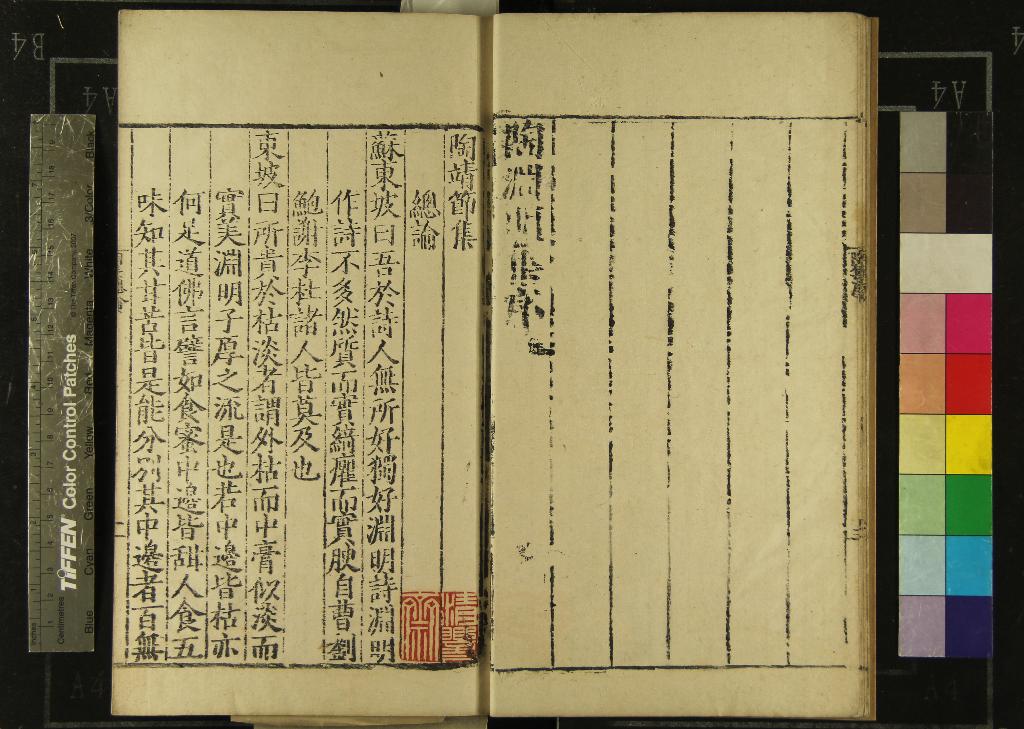 陶淵明集
陶靖節集
總論
蘇東坡曰吾於詩人無所好獨好淵明詩淵明
作詩不多然質而實綺癯而實腴自曹劉
鮑謝李杜諸人皆莫及也
東坡曰所貴於枯淡者謂外枯而中膏似淡而
實美淵明子厚之流是也若中邊皆枯亦
何足道佛言譬如食蜜中邊皆甜人食五
味知其甘苦皆是能分別其中邊者百無
B4
A4
A4
4
A4
A4
inches
Centimetres
TIFFEN Color Control Patches
© The Tiffen Company, 2007
Blue
Cyan
Green
Yellow
Red
Magenta
White
3/Color
Black